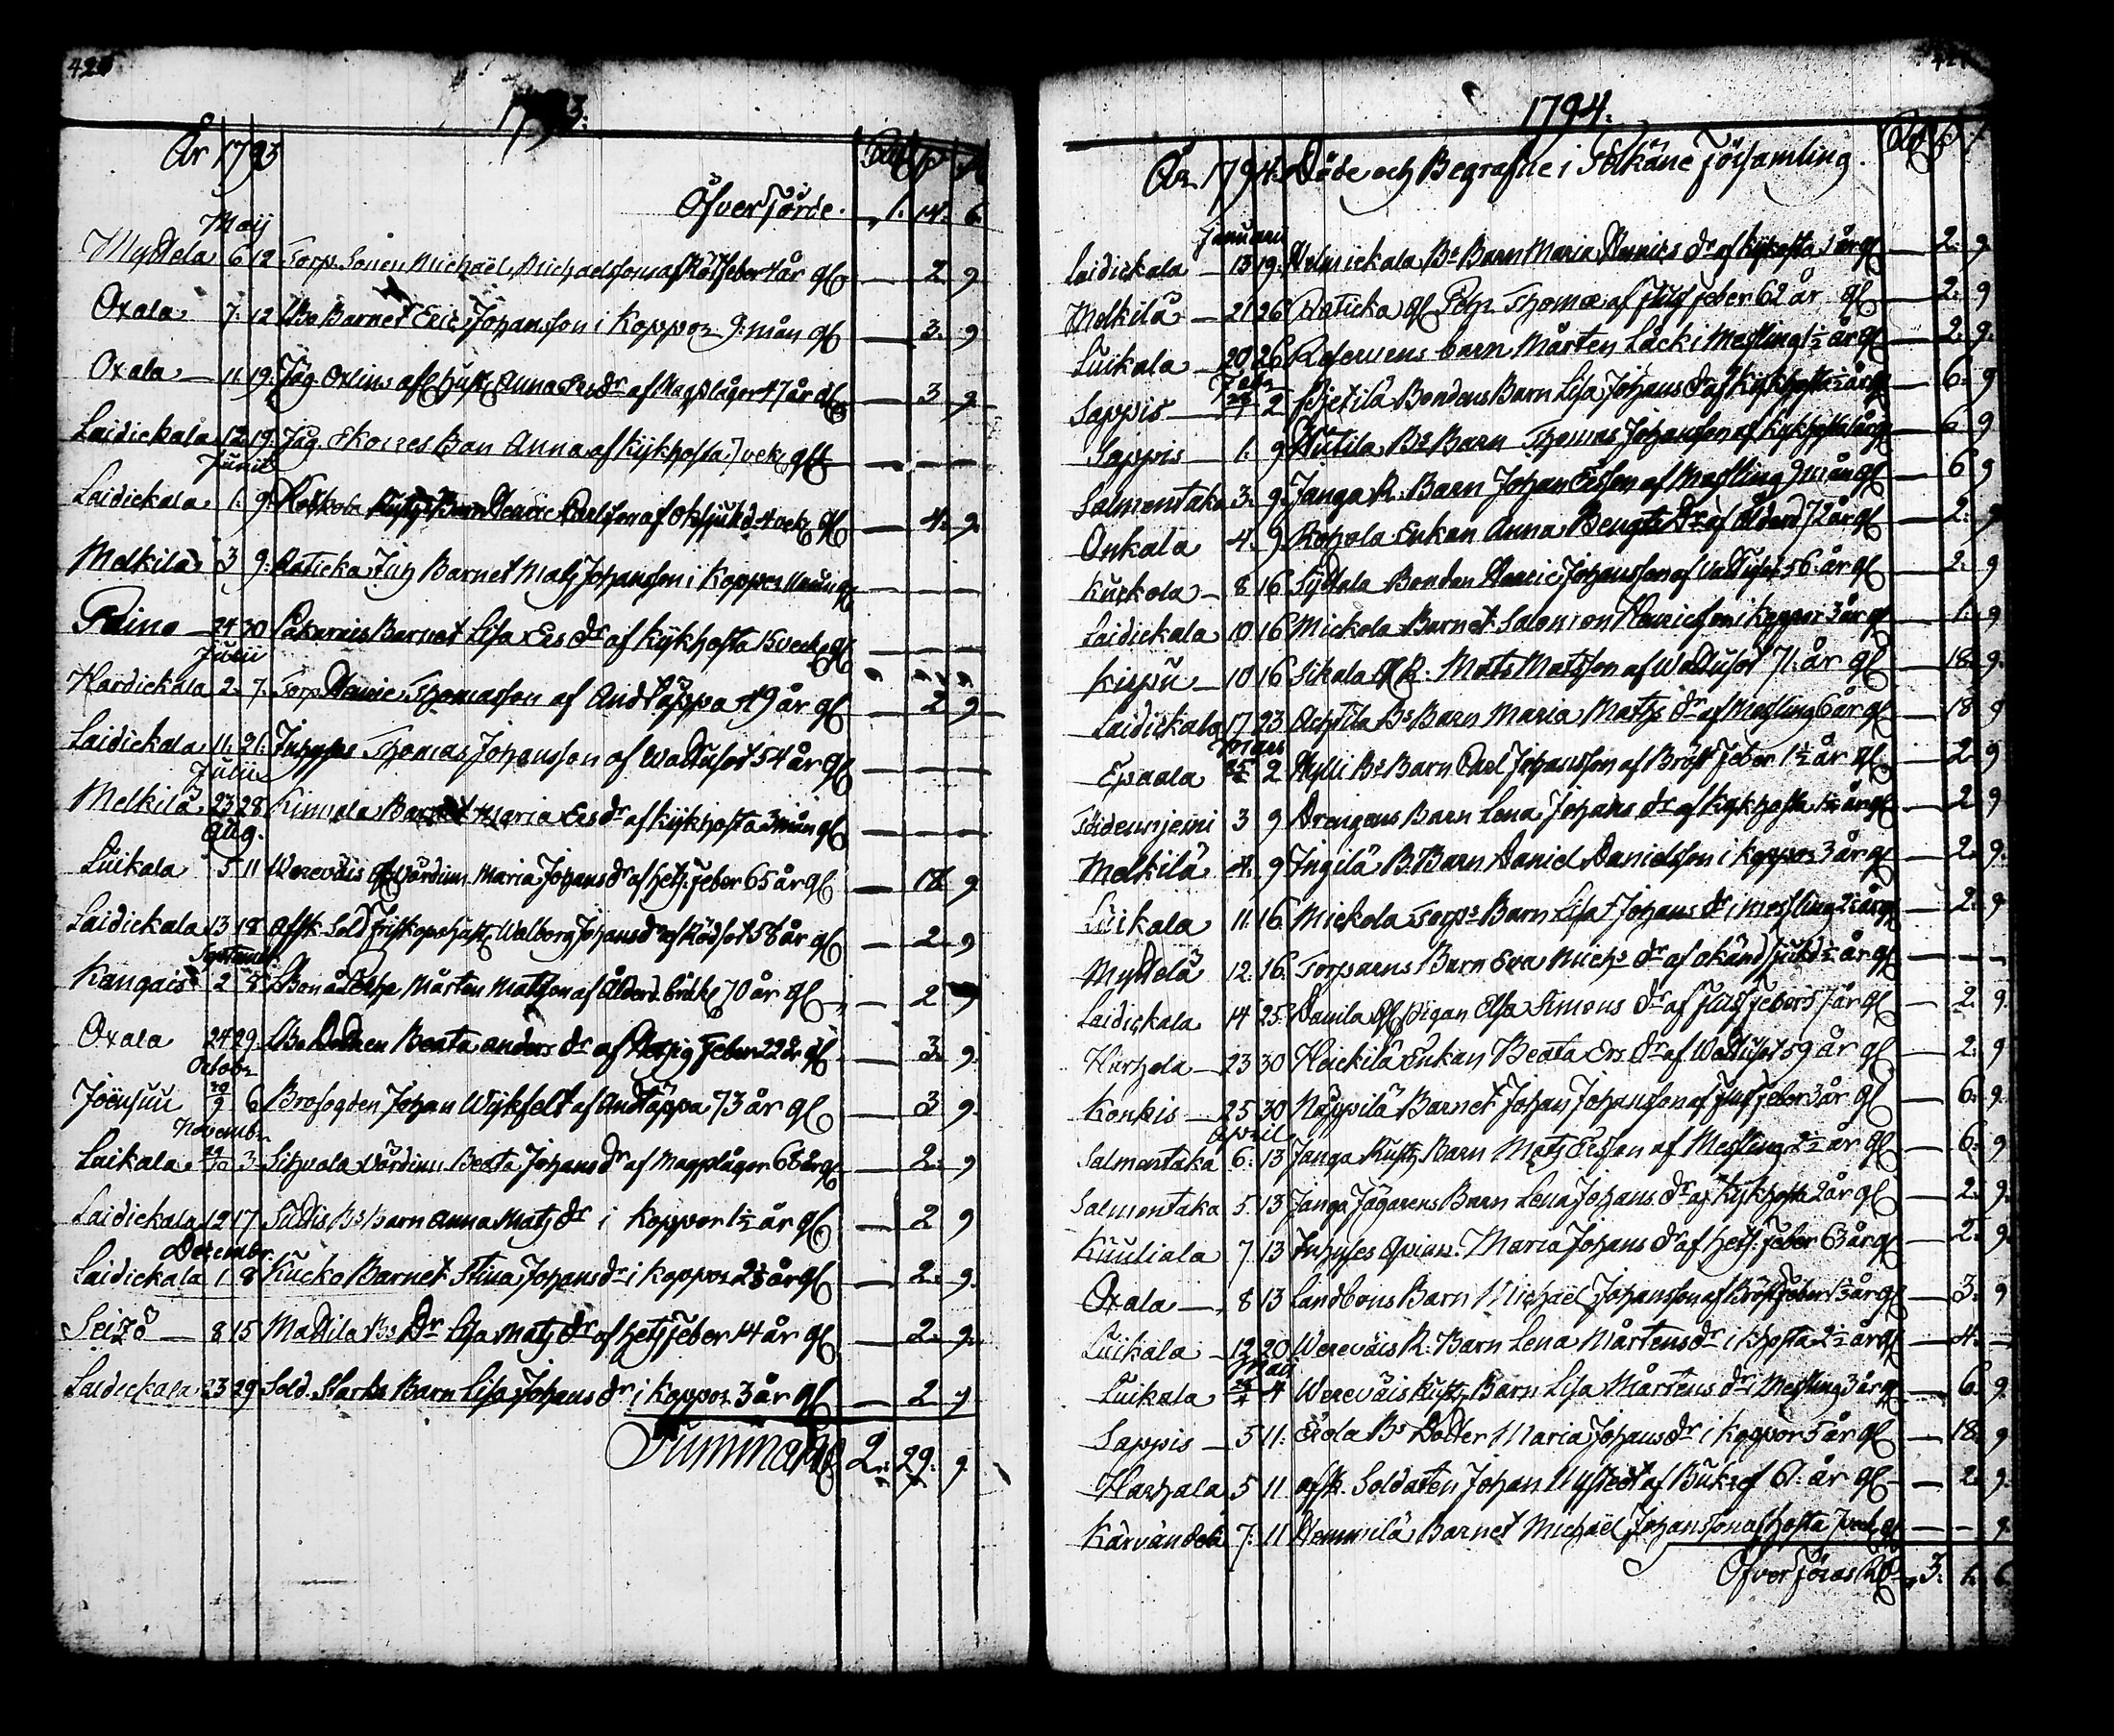 1793.
År 1793
Öfverförde. 1. 14. 6.
Maij
Myttela 6 12 Torp. Sonen Michaël Michaelsson af Rötfeber 4 år gl — 2 9
Oxala 7. 12 Bo Barnet Eric Johansson i Koppor 9. mån gl — 3. 9
Oxala 11. 19. Jäg. Oxlins Anna Ers dr af Magplågor 47 år — 3 9
Laidickala 12. 19. Jäg. Ekorres Barn Anna af Kijkhosta 7 vek — — —
Junii
Laidickala 1. 9. Barn Henric Carlsson af Okj. Sjukd. 4 vek gl — 4. 9.
Melkila 3 9. Raticka Inh Barnet Matz Johansson i Koppor — — —
Paino 24 30 Pakarais Barnet Lisa Ers dr af Kijkhosta 15 veck gl — — —
Julii
Hardickala 2. 7. Torp Henric Thomasson af Andtäppa 49 år gl — 2 9
Laidickala 11. 21. Inhyses Thomas Johansson af Wattusot 54 år gl — — —
Julii
Melkilä 23 28 Kimala Barnet Maria Ers dr af Kijkhosta 3 mån gl — — —
Aug.
Luikala 5 11 Werevais Värdinn Maria Johans dr af hets. feber 65 år gl — 18 9
Laidickala 13 18 Afsk Sold Walborg Johans dr af Rödsot 58 år gl — 2 9
Septembr
Kangais 2 8 Mårten Matsson af Ålderd. bräkl 70 år gl — 2 9
Oxala 24 29. Bo Dottren Beata Anders dr af Hetzig Feber 22 år gl — 3. 9.
Octobr
Joënsuu 29/9 6 Brofogden Johan Wijkfelt af Andtäppa 73 år gl — 3 9.
Novembr
Luikala 29/10 3 Sihvola Värdinn Beata Johans dr af Magplågor 68 år gl — 2. 9
Laidickala 12 17 Bs Barn Anna Matz dr i Koppor 1½ år gl — 2 9
Decembr.
Laidickala 1 8 Kucko Barnet Stina Johans dr i Koppor 2½ år gl — 2. 9.
Seizö 8 15 Mattila Bs Dr Lisa Matz dr af hetz feber 14 år gl — 2. 9.
Laidickala 23 29 Sold. Starks Barn Lisa Johans dr i Koppor 3 år gl — 2 9
Summa 2. 29. 9.
1794.
År 1794. Döde och Begrafne i Sälkäne Församling.
Januarii
Laidickala 13 19. Bs Barn Maria Henrics dr af Kijkhosta 1 år gl — 2. 9.
Melkilä 21 26 Raticka gl Thomæ af feber 62 år gl — 2. 9
Luikala 20 26 Reservens barn Mårten Låck i Messling 1½ år gl — 2. 9.
Febr
Sappis 2 Pjetilä Bondens Barn Lisa Johans dr af Kijkhosta — 6. 9
Sappis 1. 9 Hutila Bs Barn Thomas Johansson af Kijkhosta — 6 9
Salmentaka 3. 9. Janga R. Barn Johan Ersson af Messling 9 mån gl — 6 9
Onkala 4. 9. Rohola Enkan Anna Bengts dr af ålderd 72 år gl — 2. 9
Kuckola 8 16 Bonden Henric Johansson af Wattusot 56. år gl — 2. 9
Laidickala 10 16 Mickola Barnet Salomon Henricsson i Koppor 3 år gl — 1. 9
Kuipu 10 16 Sikala Mats Matsson af Wattusot 71. år gl — 18. 9.
Laidickala 17 23 Achtila Bs Barn Maria Mats dr af Messling 6 år gl — 18 9
Martii
Epaala 25/2 2 Hylli Bs Barn Axel Johansson af Bröst Feber 1½ år gl — 2. 9
3 9 Drengens Barn Lena Johans dr af Kijkhosta 1½ år gl — 2. 9
Melkilä 4. 9 Ingilä B. Barn Daniel Danielsson i Koppor 3 år gl — 2. 9.
Luikala 11. 16 Mickola Torps Barn Lisa Johans dr i Messling 2½ år gl — 2. 9
Myttelä 12. 16. Torparens Barn Eva Michs dr af okänd sjukd ½ år gl — — —
Laidickala 14 25. Danila Pigan Elsa Simons dr af Feber 57 år gl — 2. 9.
Harhala 23 30 Heickilä Enkan Beata Ers. dr af Wattusot 59 år gl — 2. 9
Konkis 25 30 Näppilä Barnet Johan Johansson af feber 3 år gl — 6. 9.
April
Salmentaka 6. 13 Janga Rustz Barn Matz Ersson af Messling 2½ år gl — 6. 9
Salmentaka 5. 13 Janga Jägarens Barn Lena Johans dr af Kijkhosta 2 år gl — 2. 9.
Kuuliala 7 13 Inhyses Qvinn. Maria Johans dr af hets. Feber 63 år gl — 2. 9.
Oxala 8 13 Landbons Barn Michaël Johansson af Bröstfeber 1½ år gl — 3. 9
Luikala 12 20 Werevais R. Barn Lena Mårtens dr i Khosta 2½ år gl — 4. —
Maij
Luikala 4 Werevais Rustz Barn Lisa Mårtens dr i Messling 3 år gl — 6. 9.
Sappis 3 11. Erola Bs Dotter Maria Johans dr i Koppor 5 år gl — 18. 9
Harhala 5 11 afsk. Soldaten Johan af Bukref 61. år gl — 2. 9.
Kärväntela 7. 11 Hemmilä Barnet Michaël Johansson af hosta 7 vek gl — — 9.
Öfverföres 3. 1. 6.